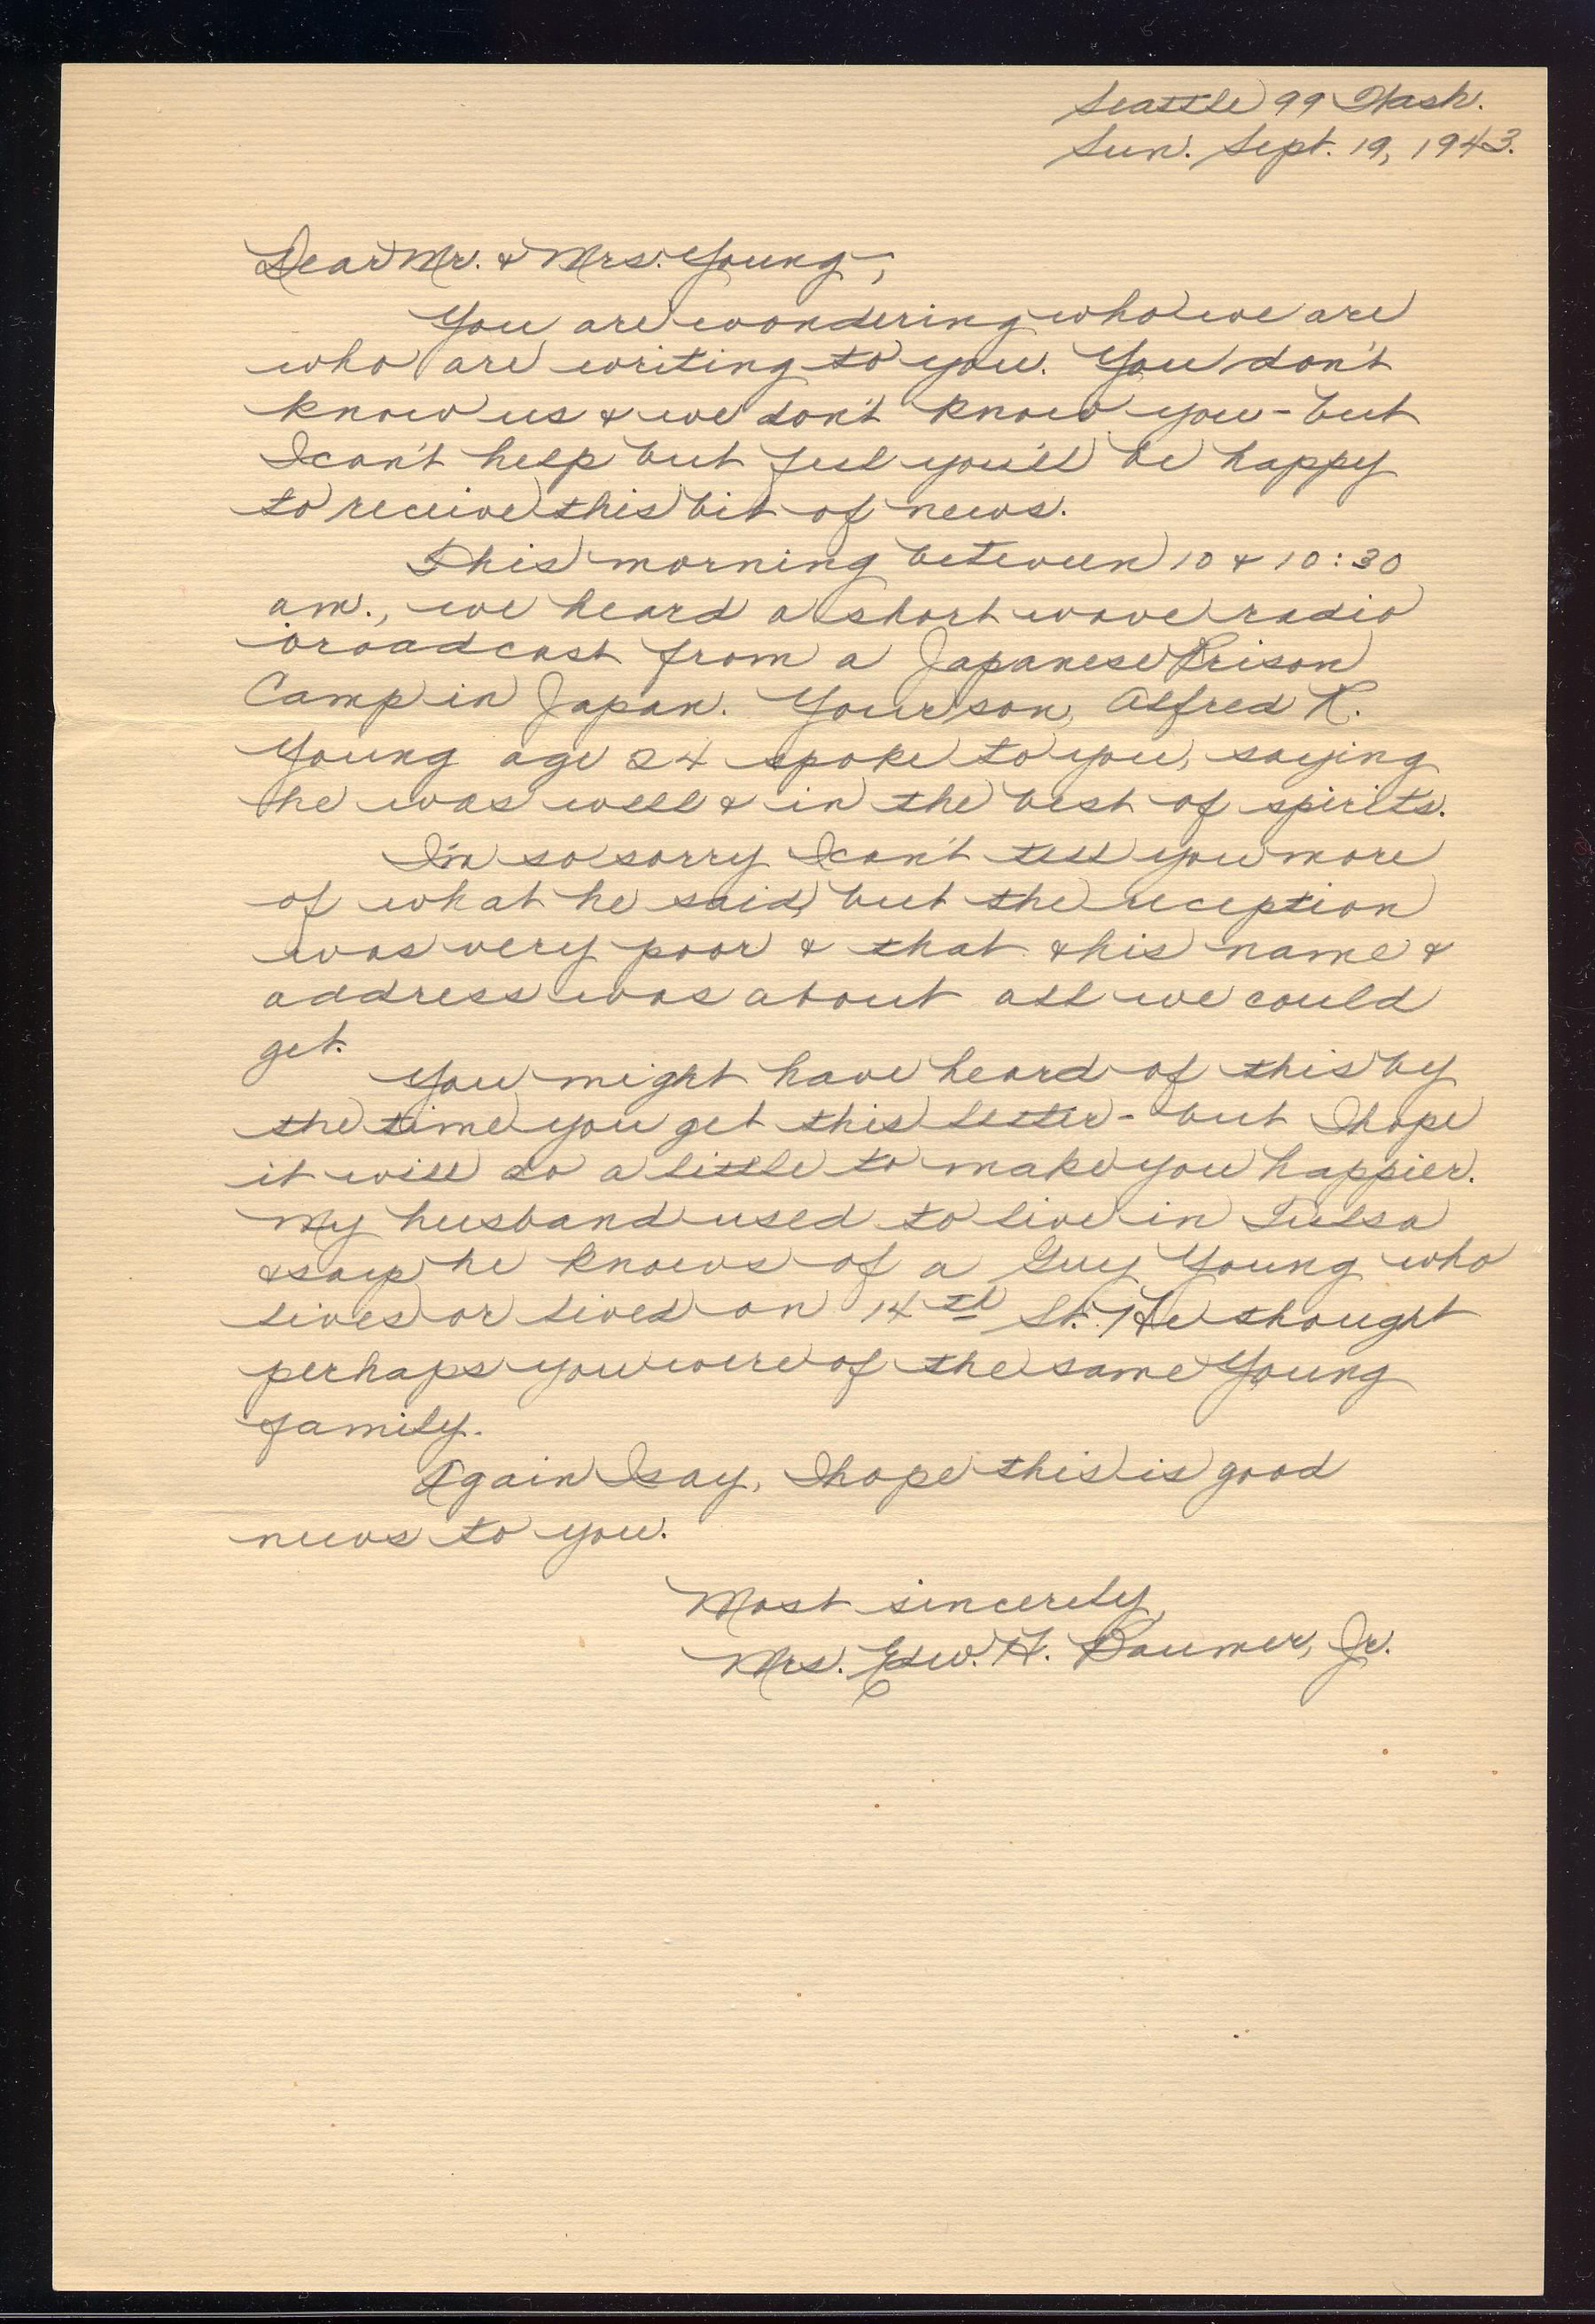 Seattle 99 Wash.
Sun. Sept. 19, 1943.
Dear Mr. & Mrs. Young;
You are wondering who we are
who are writing to you. You don't
know us & we don't know you - but
I can't help but feel you'll be happy
to receive this bit of news.
This morning between 10 & 10:30
am., we heard a short wave radio
broadcast from a Japanese Prison
Camp in Japan. Your son, Alfred R.
Young age 24 spoke to you, saying
he was well & in the best of spirits.
I'm so sorry I can't tell you more
of what he said, but the reception
was very poor & that & his name &
address was about all we could
get.
You might have heard of this by
the time you get this letter - but I hope
it will do a little to make you happier.
My husband used to live in Tulsa
& says he knows of a Guy Young who
lives or lived on 14th St. He thought
perhaps you were of the same Young
family.
Again I say, I hope this is good
news to you.
Most sincerely,
Mrs. Edw. H. Baumer, Jr.